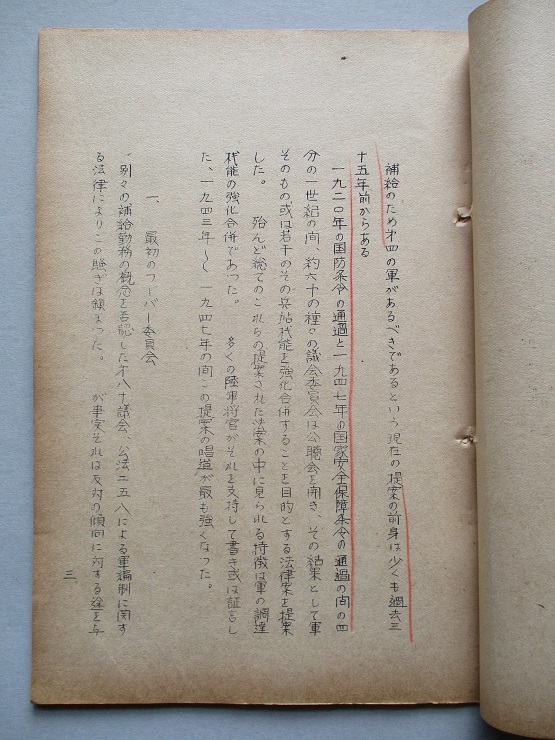 補給のため才四の軍があるべきであるという現在の提案の前身は少くも過去三
十五年前からある
一九二〇年の国防条令の通過と一九四七年の国家安全保障条令の通過の間の四
分の一世紀の間、約六十の種々の議会委員会は公聴会を開き、その結果として軍
そのもの或は若干のその兵站機能を強化合併することを目的とする法律案を提案
した。 殆んど総てのこれらの提案された法案の中に見られる特徴は軍の調達
機能の強化合併であった。 多くの陸軍将官がそれを支持して書き或は証言し
た、一九四三年〜一九四七年の間この提案の唱道が最も強くなった。
一、 最初のフーバー委員会
別々の補給勤務の概念を否認した才八十議会、公法二五八による軍編制に関す
る法律によりこの騒ぎは鎮まった。 が事実それは反対の傾向に対する途を与
三